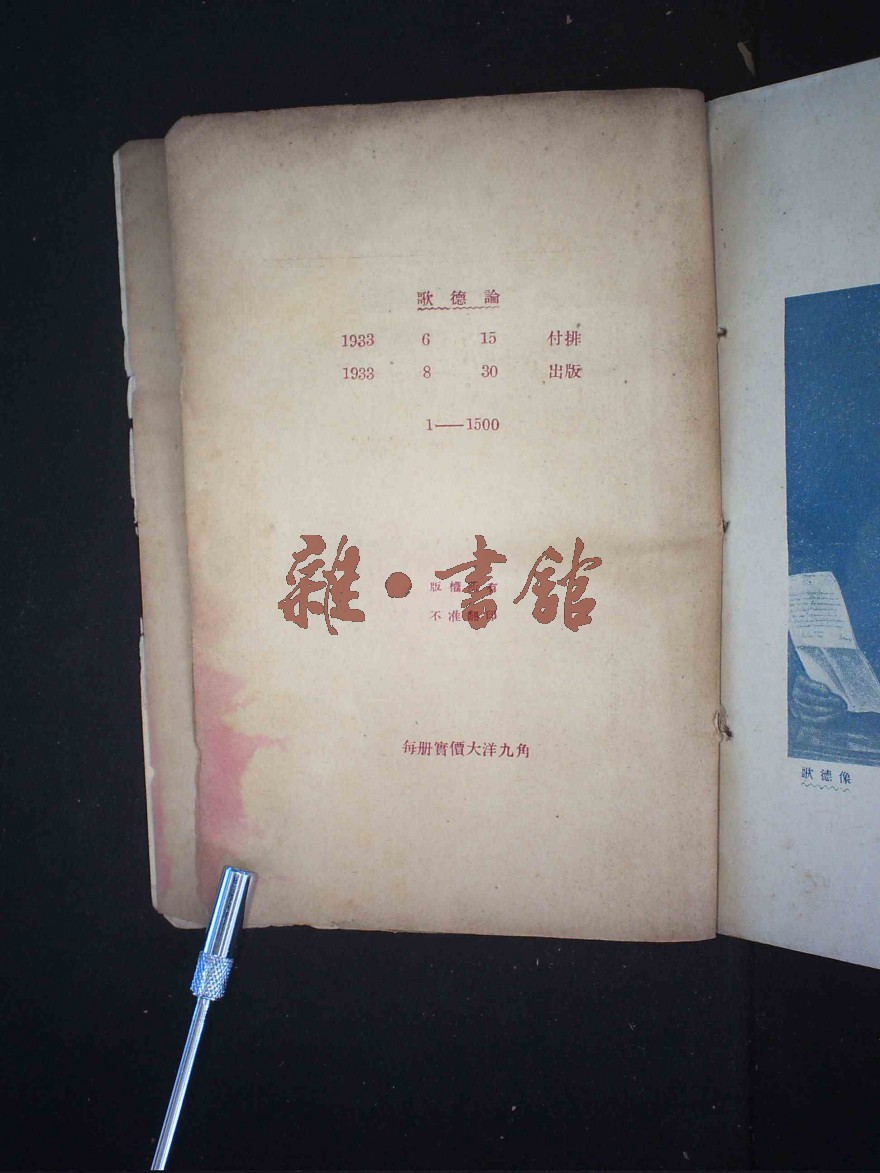 歌德論
1933 6 15 付排
1933 8 30 出版
1——1500
雜·書館
版權所有
不准翻印
每册實價大洋九角
歌德像